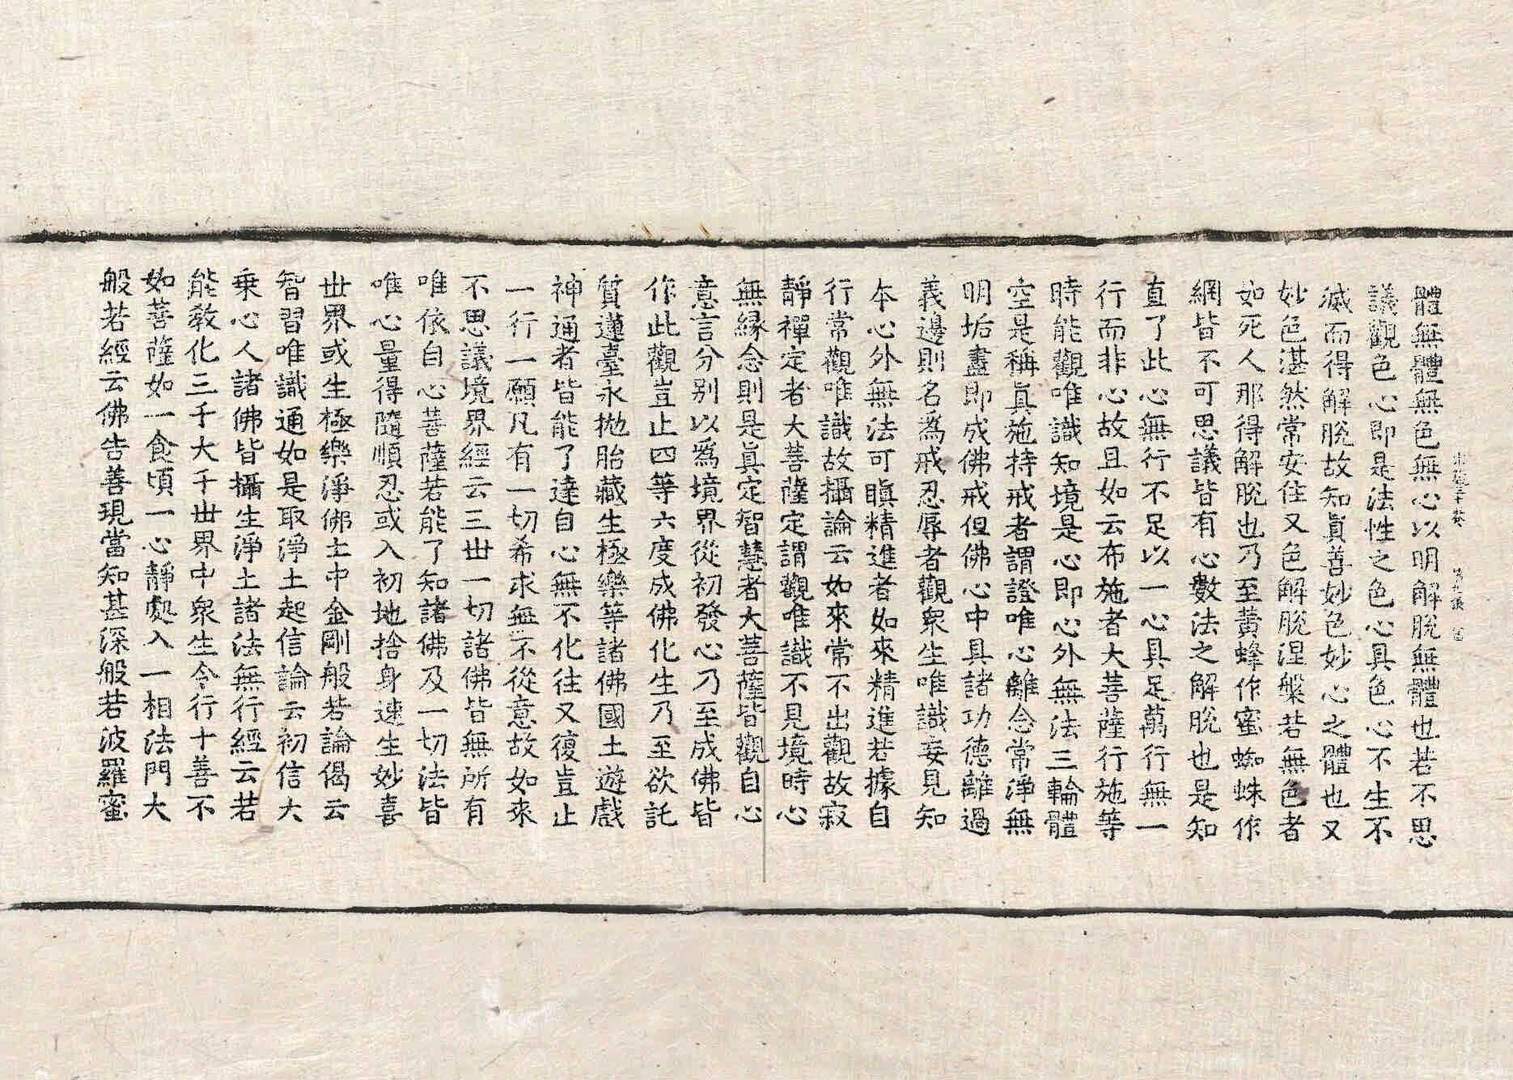 體無體無色無心以明解脫無體也若不思
議觀色心即是法性之色心具色心不生不
滅而得解脫故知眞善妙色妙心之體也又
妙色湛然常安住又色解脫涅槃若無色者
如死人那得解脫也乃至蕢蜂作蜜蜘蛛作
網皆不可思議皆有心數法之解脫也是知
直了此心無行不足以一心具足萬行無一
行而非心故且如云布施者大菩薩行施等
時能觀唯識知境是心即心外無法三輪體
空是稱眞施持戒者謂證唯心離念常淨無
明垢盡即成佛戒但佛心中具諸功德離過
義邊則名爲戒忍辱者觀衆生唯識妄見知
本心外無法可瞋精進者如來精進若據自
行常觀唯識故攝論云如來常不出觀故寂
靜禪定者大菩薩定謂觀唯識不見境時心
無緣念則是眞定智慧者大菩薩皆觀自心
意言分别以爲境界從初發心乃至成佛皆
作此觀豈止四等六度成佛化生乃至欲託
質蓮臺永拋胎藏生極樂等諸佛國土遊戲
神通者皆能了達自心無不化往又復豈止
一行一願凡有一切希求無不從意故如來
不思議境界經云三世一切諸佛皆無所有
唯依自心菩薩若能了知諸佛及一切法皆
唯心量得隨順忍或入初地捨身速生妙喜
世界或生極樂淨佛土中金剛般若論偈云
智習唯識通如是取淨土起信論云初信大
乗心人諸佛皆攝生淨土諸法無行經云若
能敎化三千大千世界中衆生令行十善不
如菩薩如一食頃一心靜處入一相法門大
般若經云佛告善現當知甚深般若波羅蜜